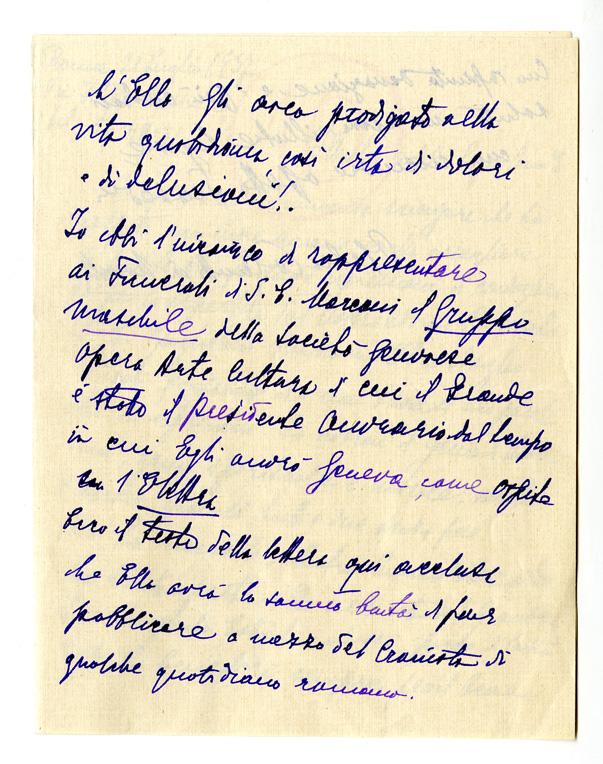 ch'Ella gli avea prodigato nella
vita quotidiana, così irta di dolori
e di delusioni!.
Io ebbi l'incarico di rappresentare
ai Funerali di S. E. Marconi il gruppo
maschile della Società Genovese
Opera Arte Cultura di cui il Grande
è stato il presidente Onorario dal tempo
in cui Egli onorò Genova, come ospite
con l'Elettra
Ecco il testo della lettera qui acclusa
che Ella avrà la somma bontà di far
pubblicare a mezzo del Cronista di
qualche quotidiano romano.